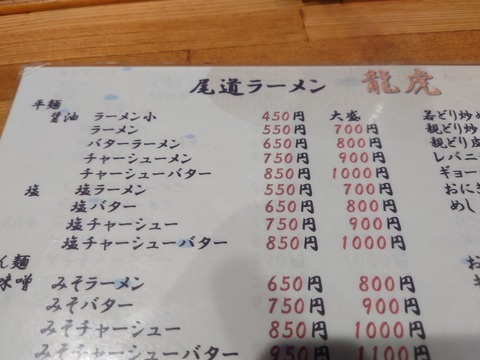 尾道ラーメン 龍虎
平麺
醤油 ラーメン小 450円 大盛 若どり炒め
ラーメン 550円 700円 親どり炒
バターラーメン 650円 800円 親どり皮
チャーシューメン 750円 900円 レバニ
チャーシューバター 850円 1000円 ギョー
塩 塩ラーメン 550円 700円 おに
塩バター 650円 800円 めし
塩チャーシュー 750円 900円
塩チャーシューバター 850円 1000円
ん麺 お
味噌 みそラーメン 650円 800円
みそバター 750円 900円
みそチャーシュー 850円 1000円
みそチャーシューバター 950円 1100円